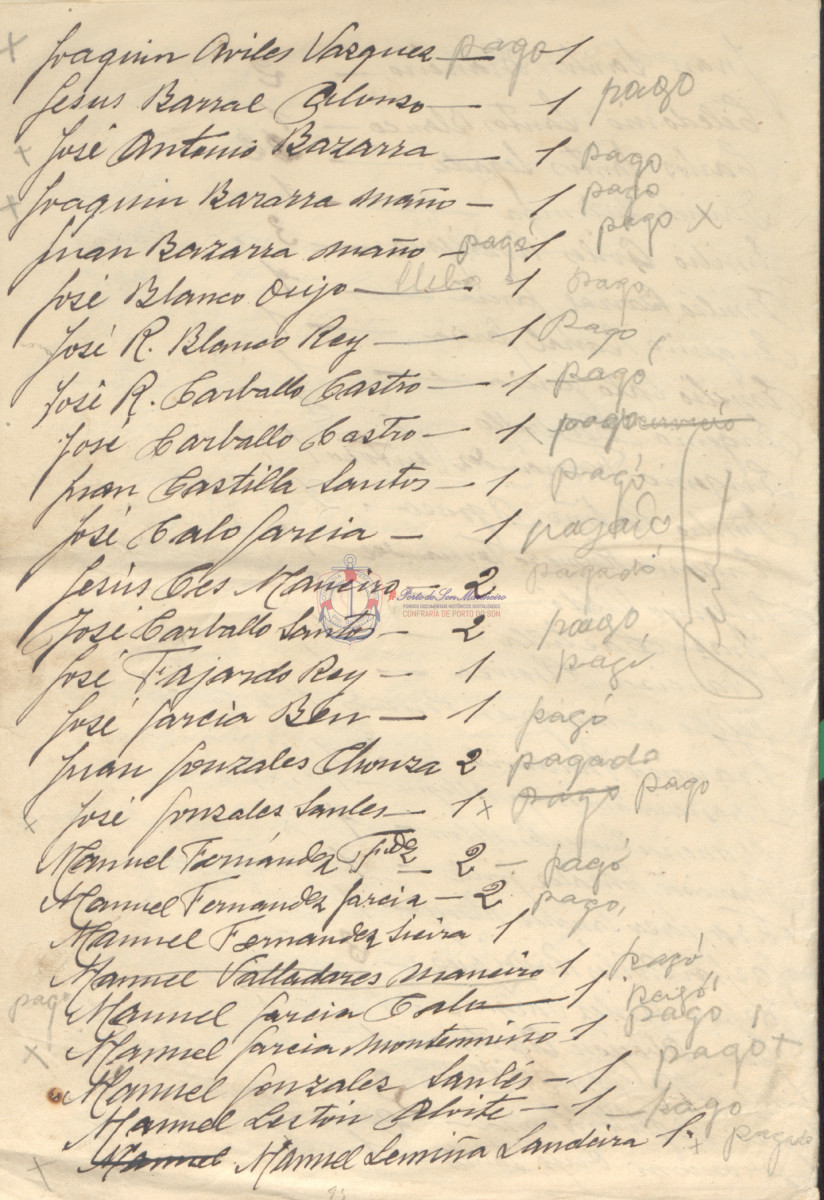 Joaquin Aviles Vazquez — pago 1
Jesus Barral Alonso — 1 pago
José Antonio Bazarra — 1 pago
Joaquin Bazarra Maño — 1 pago
Juan Bazarra Maño — pagó 1 pago X
José Blanco Oujo — 1 pago
José R. Blanco Rey — 1 Pago
José R. Carballo Castro — 1 pagó
José Carballo Castro — 1 pago servicio
Juan Castilla Santos — 1 pagó
José Calo Garcia — 1 pagado
Jesús Ces Maneiro — 2 pagadó
#PortodoSonMariñeiro
FONDOS DOCUMENTAIS HISTÓRICOS DIXITALIZADOS
CONFRARÍA DE PORTO DO SON
José Carballo Santos — 2 pago
José Fajardo Rey — 1 pagó
José Garcia Ben — 1 pagó
Juan Gonzales Chouza 2 pagado
x José Gonzales Sanles — 1 x pago pago
Manuel Fernández Fdez — 2 — pagó
Manuel Fernandez Garcia — 2 pago,
Manuel Fernandez Sieira 1
Manuel Valladares Maneiro 1 pagó
pago Manuel Garcia Calo — 1 pagó
X Manuel Garcia Montemiño 1 pago
Manuel Gonzales Sanlés — 1 pagó +
Manuel Lestón Alvite — 1 pago
x Manuel Manuel Lemiña Landeira 1 x pagado